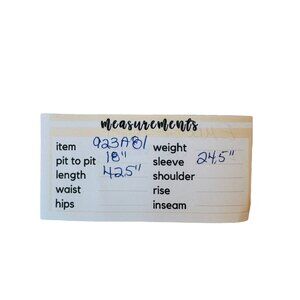 measurements
item 923A81 weight
pit to pit 18" sleeve 24.5"
length 42.5" shoulder
waist rise
hips inseam